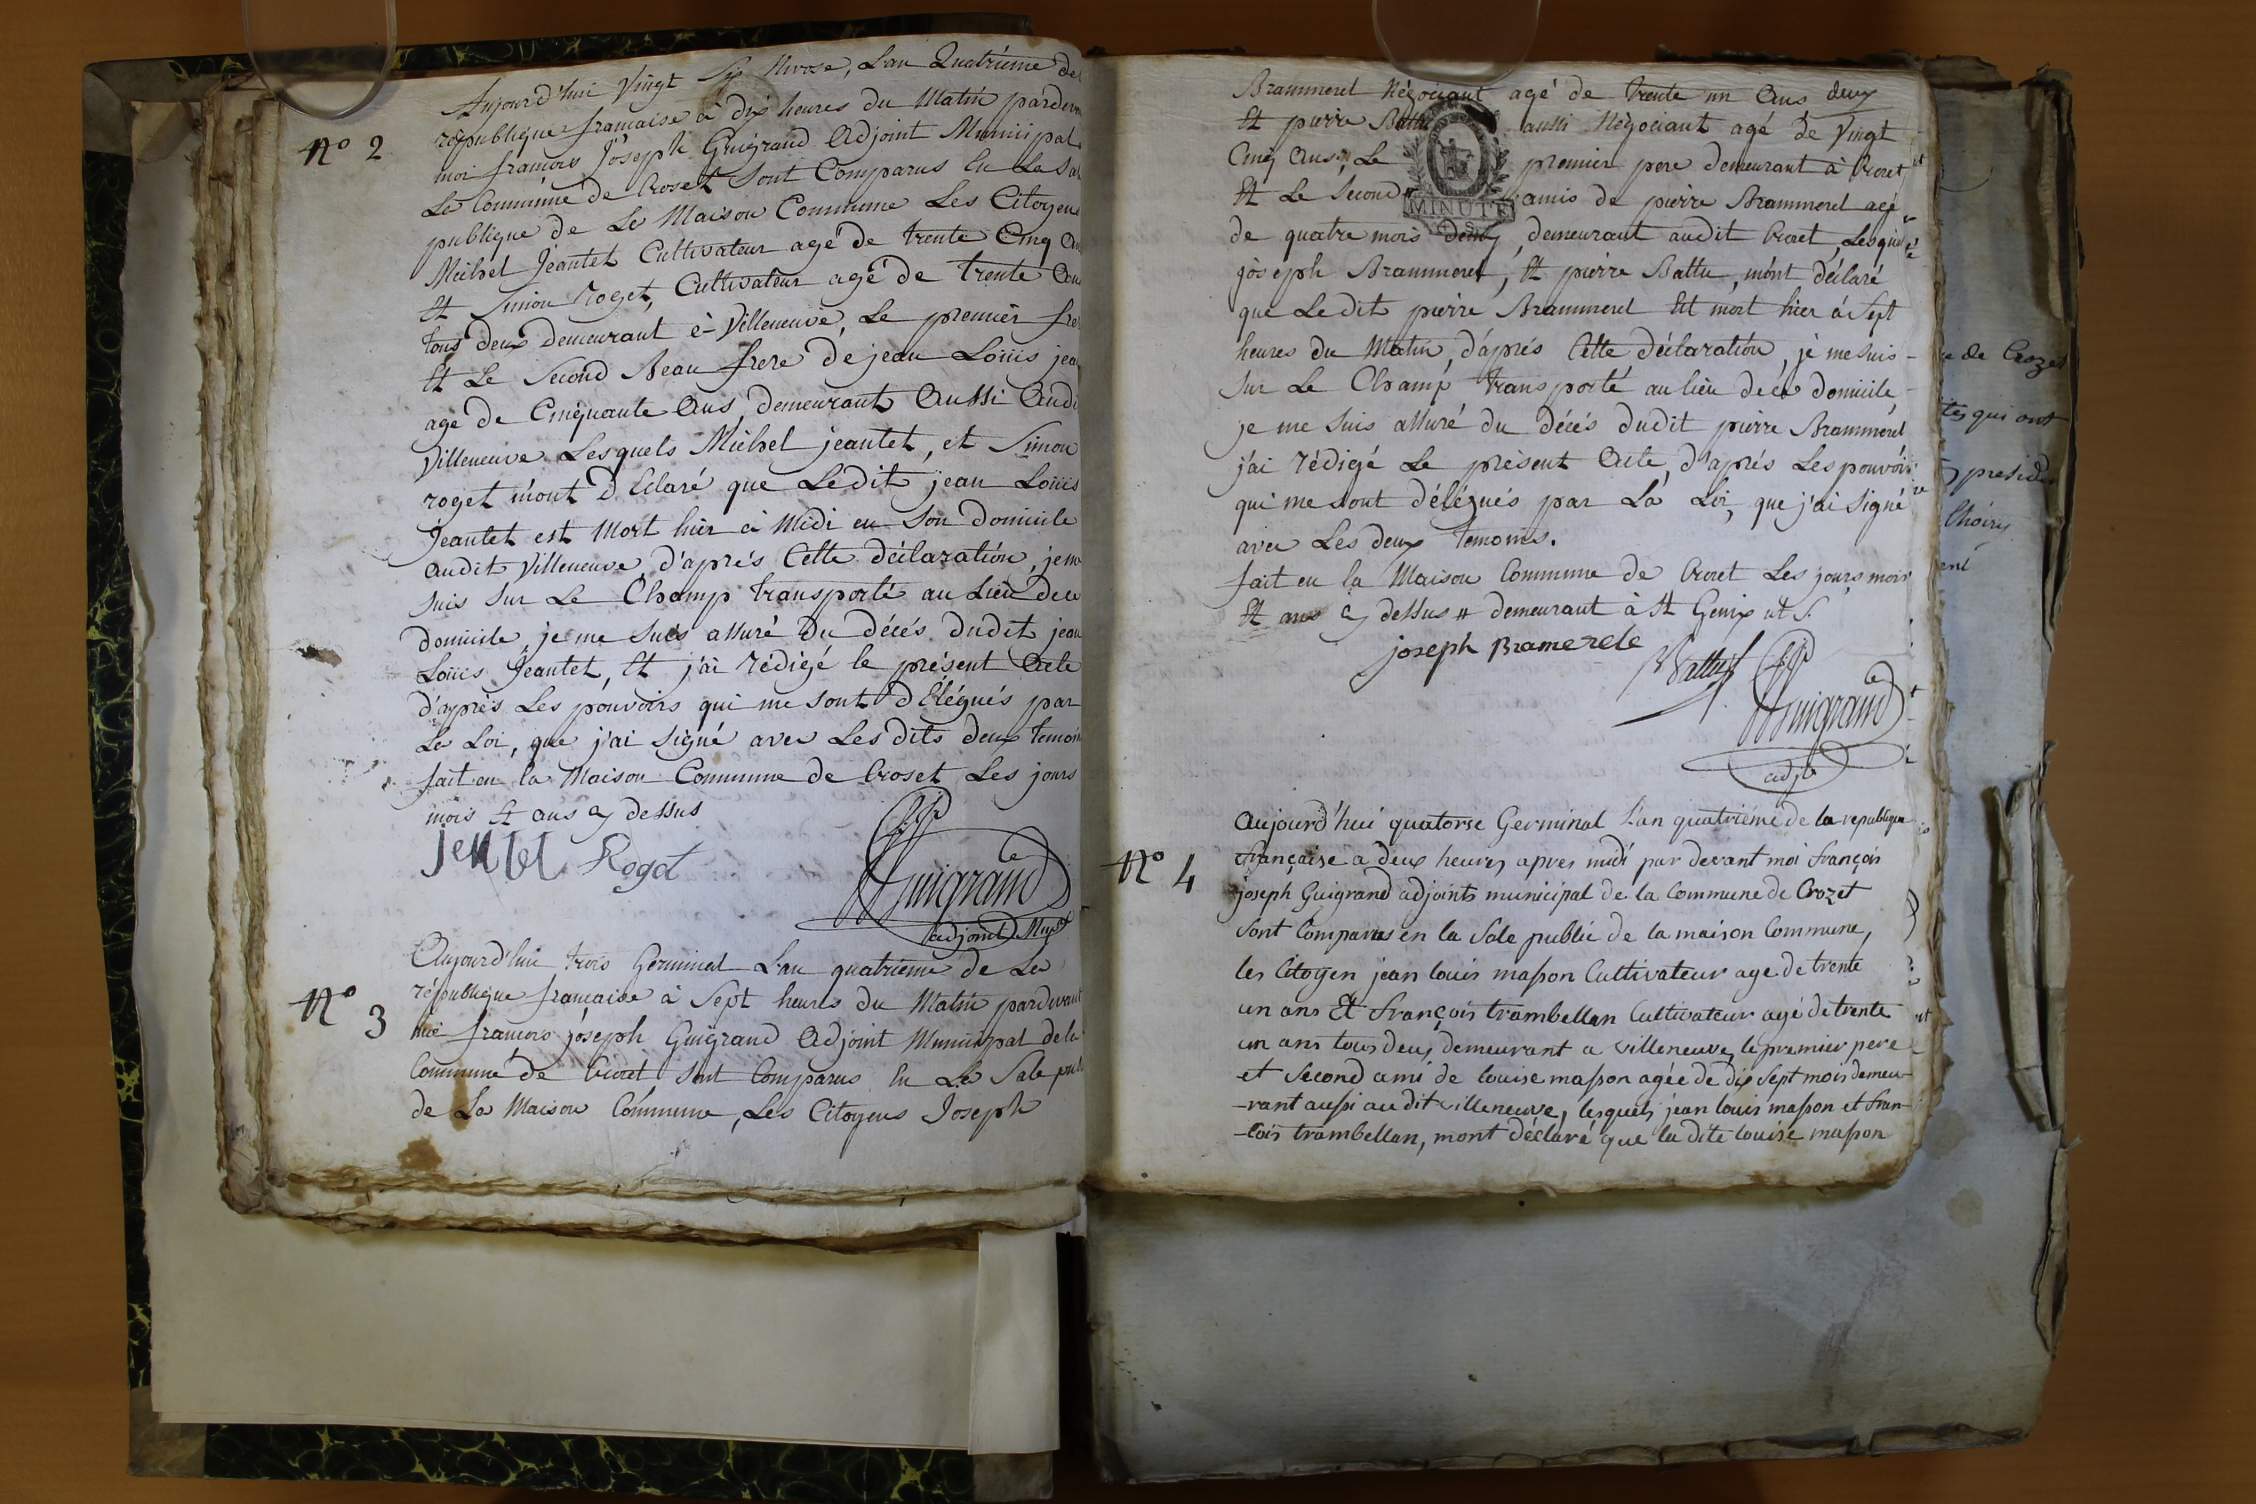 Nº 2
Aujourd'hui Vingt Six Nivose, L'an Quatriéme de
republique francaise à dix heures du Matin pardev
moi francois Joseph Guigrand Adjoint Municipal
La Commune de Croset sont Comparus En La Sal
publique de La Maison Commune Les Citoyens
Michel Jeantet Cultivateur agé de trente Cinq An
Et Simon Roget, Cultivateur agé de trente Ans
tous deux demeurant à Villeneuve, Le premier frer
Et Le Second Beau frere de jean Loüis jean
agé de Cinquante Ans, demeurant Aussi Audi
Villeneuve Lesquels Michel jeantet, et Simon
roget m'ont déClaré que Ledit jean Loüis
Jeantet est Mort hier à Midi en Son domicile
audit Villeneuve d'aprés Cette déclaration, je me
suis sur Le Champ transporté au Lieu de ce
domicile, je me suis assuré du décés dudit jean
Loüis Jeantet, Et j'ai rédigé le présent Acte
d'aprés Les pouvoirs qui me sont déLégués par
La Loi, que j'ai signé avec Les dits deux temoin
fait en la Maison Commune de Croset Les jours
mois Et ans Cy dessus
jentet Roget
Guigrand
adjoint Mupal
Nº 3
Aujourd'hui trois Germinal L'an quatrieme de La
république francaise à Sept heures du Matin pardevant
moi francois joseph Guigrand Adjoint Municipal de la
Commune de Crozet sont Comparus En La Sale publi
de La Maison Commune, Les Citoyens Joseph
Brammerel Négociant agé de trente un Ans deux
Et pierre Battu aussi Négociant agé de Vingt
Cinq Ans, Le premier pere demeurant à Crozet
Et Le Second # amis de pierre Brammerel agé
MINUTE
de quatre mois demy, demeurant audit Crozet, Lesquels
joseph Brammerel, Et pierre Battu, m'ont déclaré
que Ledit pierre Brammerel Est mort hier à Sept
heures du Matin, d'aprés Cette déclaration, je me suis
sur Le Champ transporté au lieu de ce domicile,
je me suis assuré du décés dudit pierre Brammerel
j'ai rédigé Le présent Acte, d'aprés Les pouvoirs
qui me sont délégués par La Loi, que j'ai Signé
avec Les deux temoins.
fait en la Maison Commune de Crozet Les jours, mois
Et ans Cy dessus # demeurant à St Genix
joseph Bramerele
Battu
Guigrand
adjt
Nº 4
Aujourd'hui quatorse Germinal L'an quatriéme de la republique
française a deux heures apres midi par devant moi françois
joseph Guigrand adjoints municipal de la Commune de Crozet
Sont Comparus en la Sale public de la maison Commune,
les Citoyen jean louis masson Cultivateur age de trente
un ans Et françois trambellan Cultivateur agé de trente
un ans tous deux demeurant a villeneuve, le premier pere
et Second ami de louise masson agée de dix Sept mois demeu-
-rant aussi au dit villeneuve, lesquels jean louis masson et fran-
-cois trambellan, mont déclaré que la dite louise masson
de Crozet
qui ont